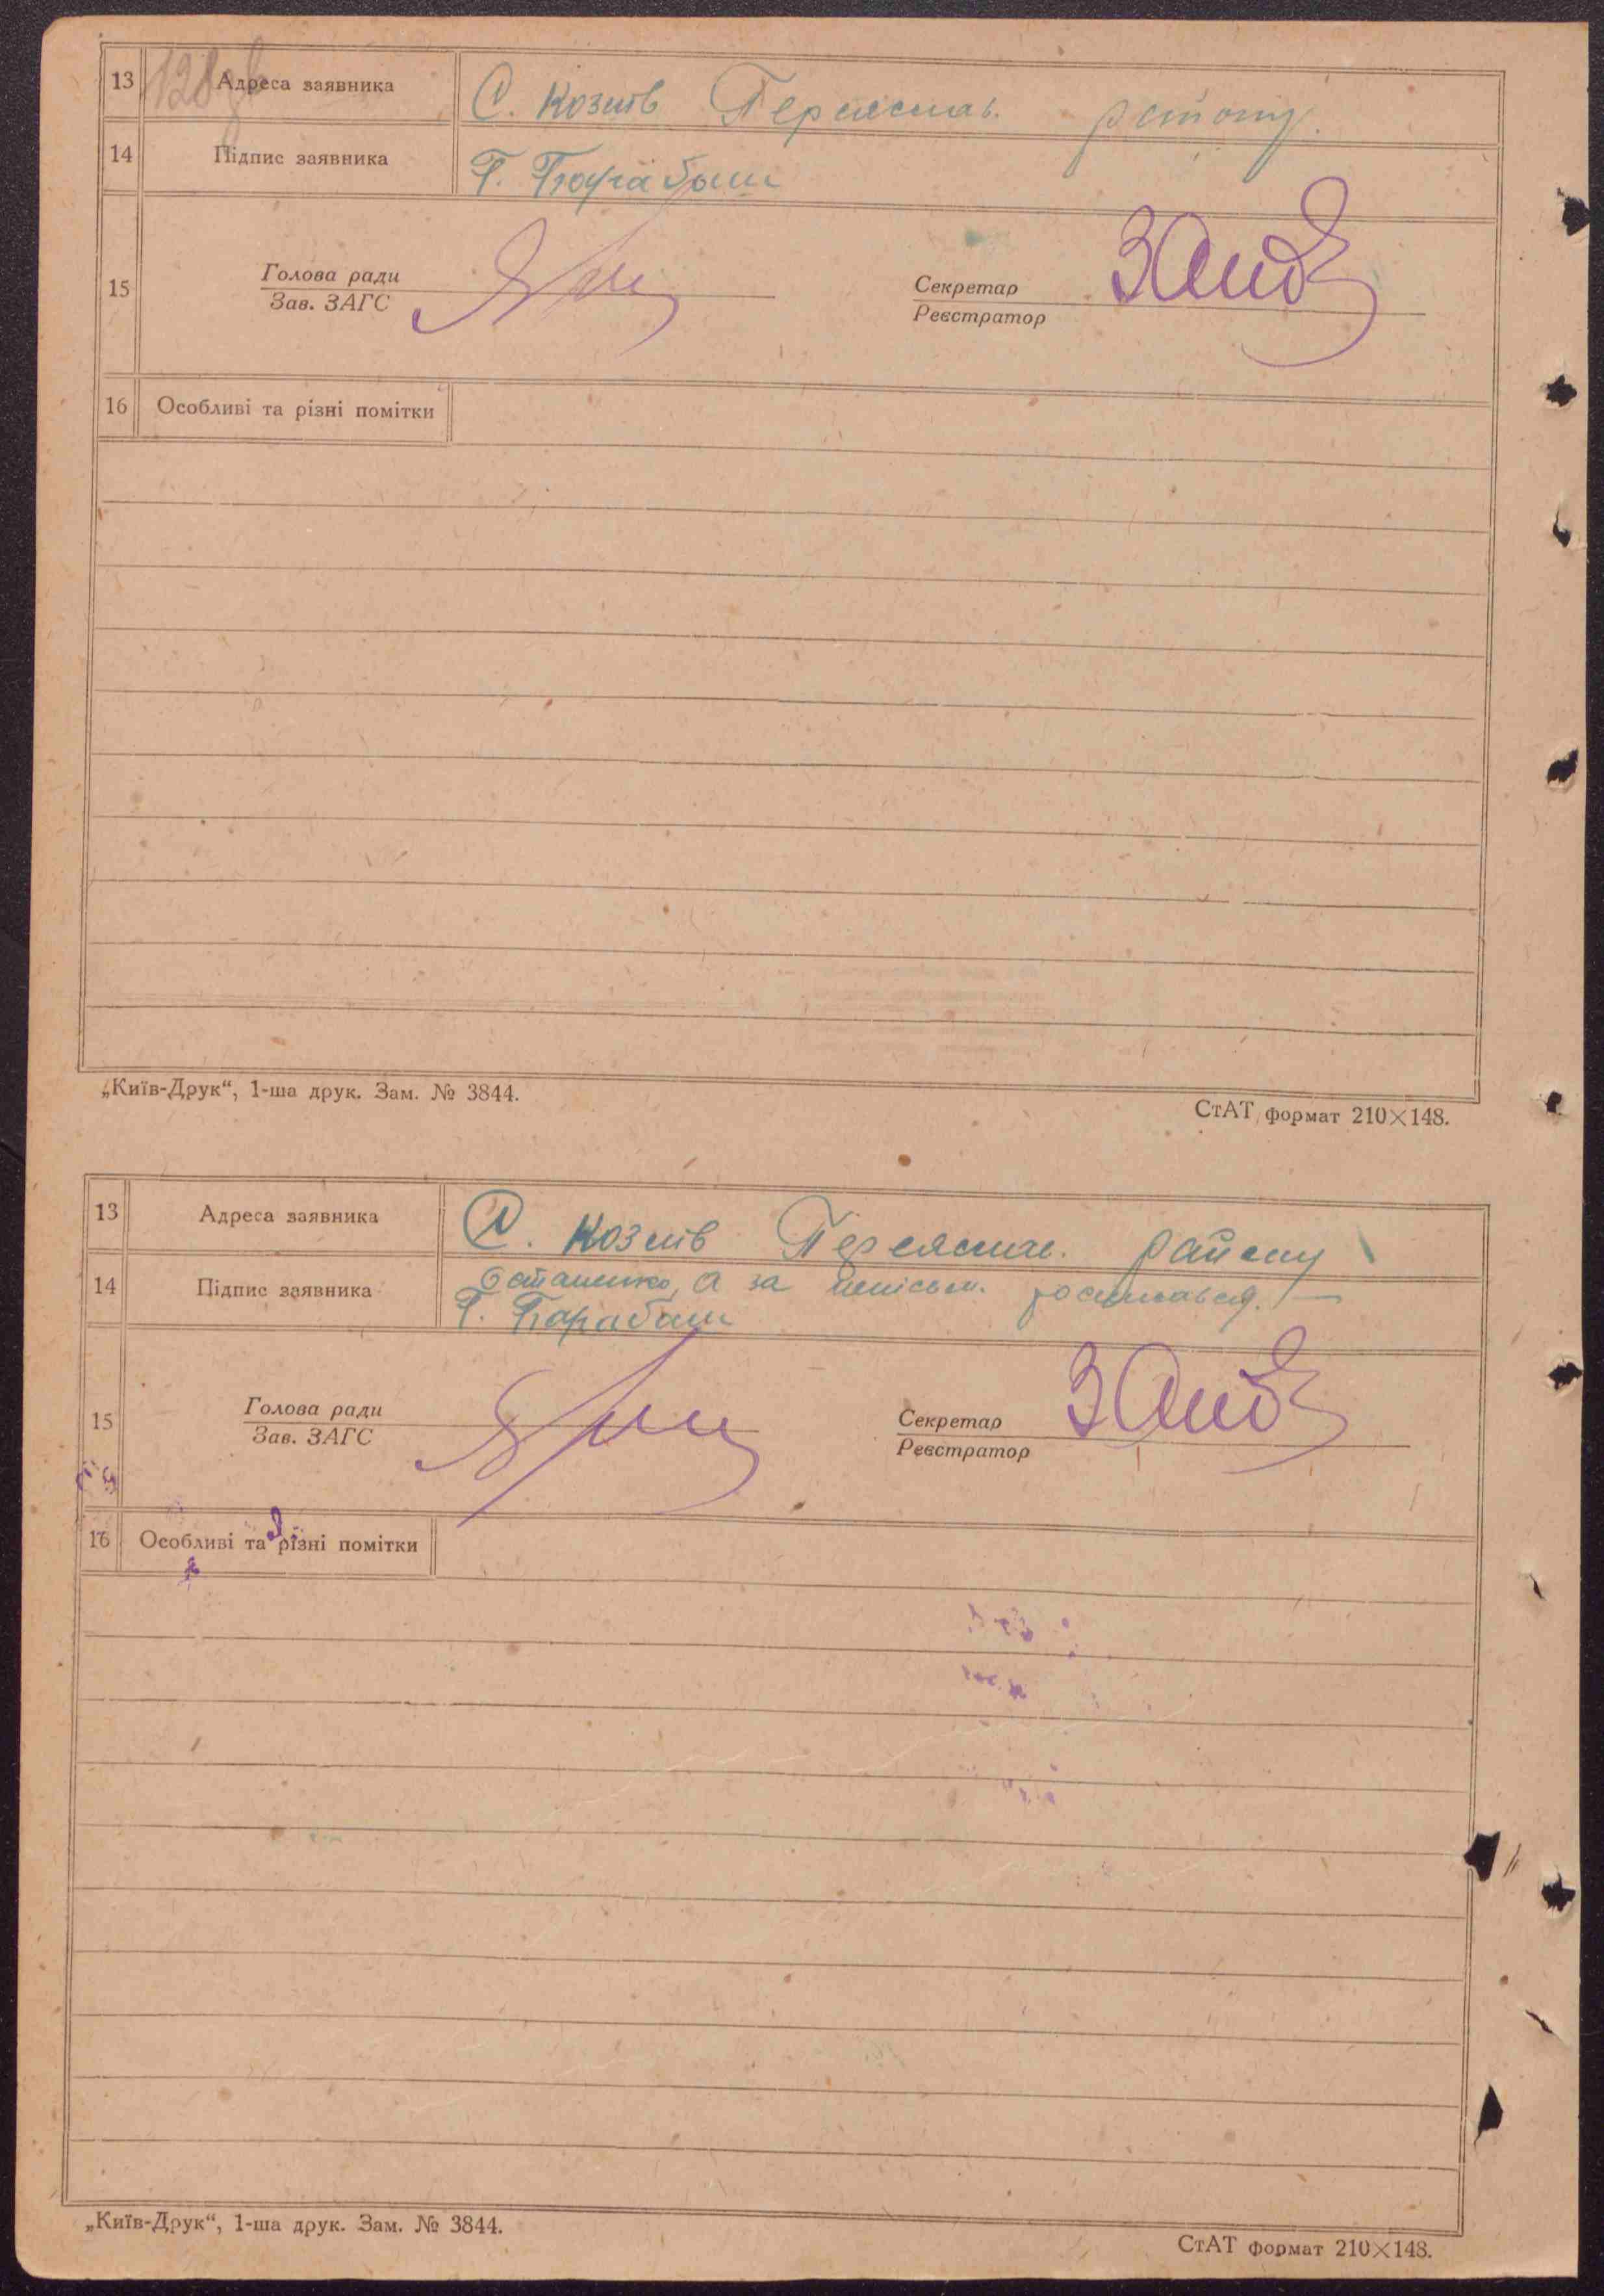 128 зв
13 Адреса заявника С. Козлів Переяслав. району.
14 Підпис заявника Г. Барабаш
15 Голова ради Секретар
Зав. ЗАГС Реєстратор
16 Особливі та різні помітки
„Київ-Друк“, 1-ша друк. Зам. № 3844.
СтАТ формат 210×148.
13 Адреса заявника С. Козлів Переяслав. району
14 Підпис заявника Остапенко, а за неписьм. росписався. —
Г. Барабаш
15 Голова ради Секретар
Зав. ЗАГС Реєстратор
16 Особливі та різні помітки
„Київ-Друк“, 1-ша друк. Зам. № 3844.
СтАТ формат 210×148.